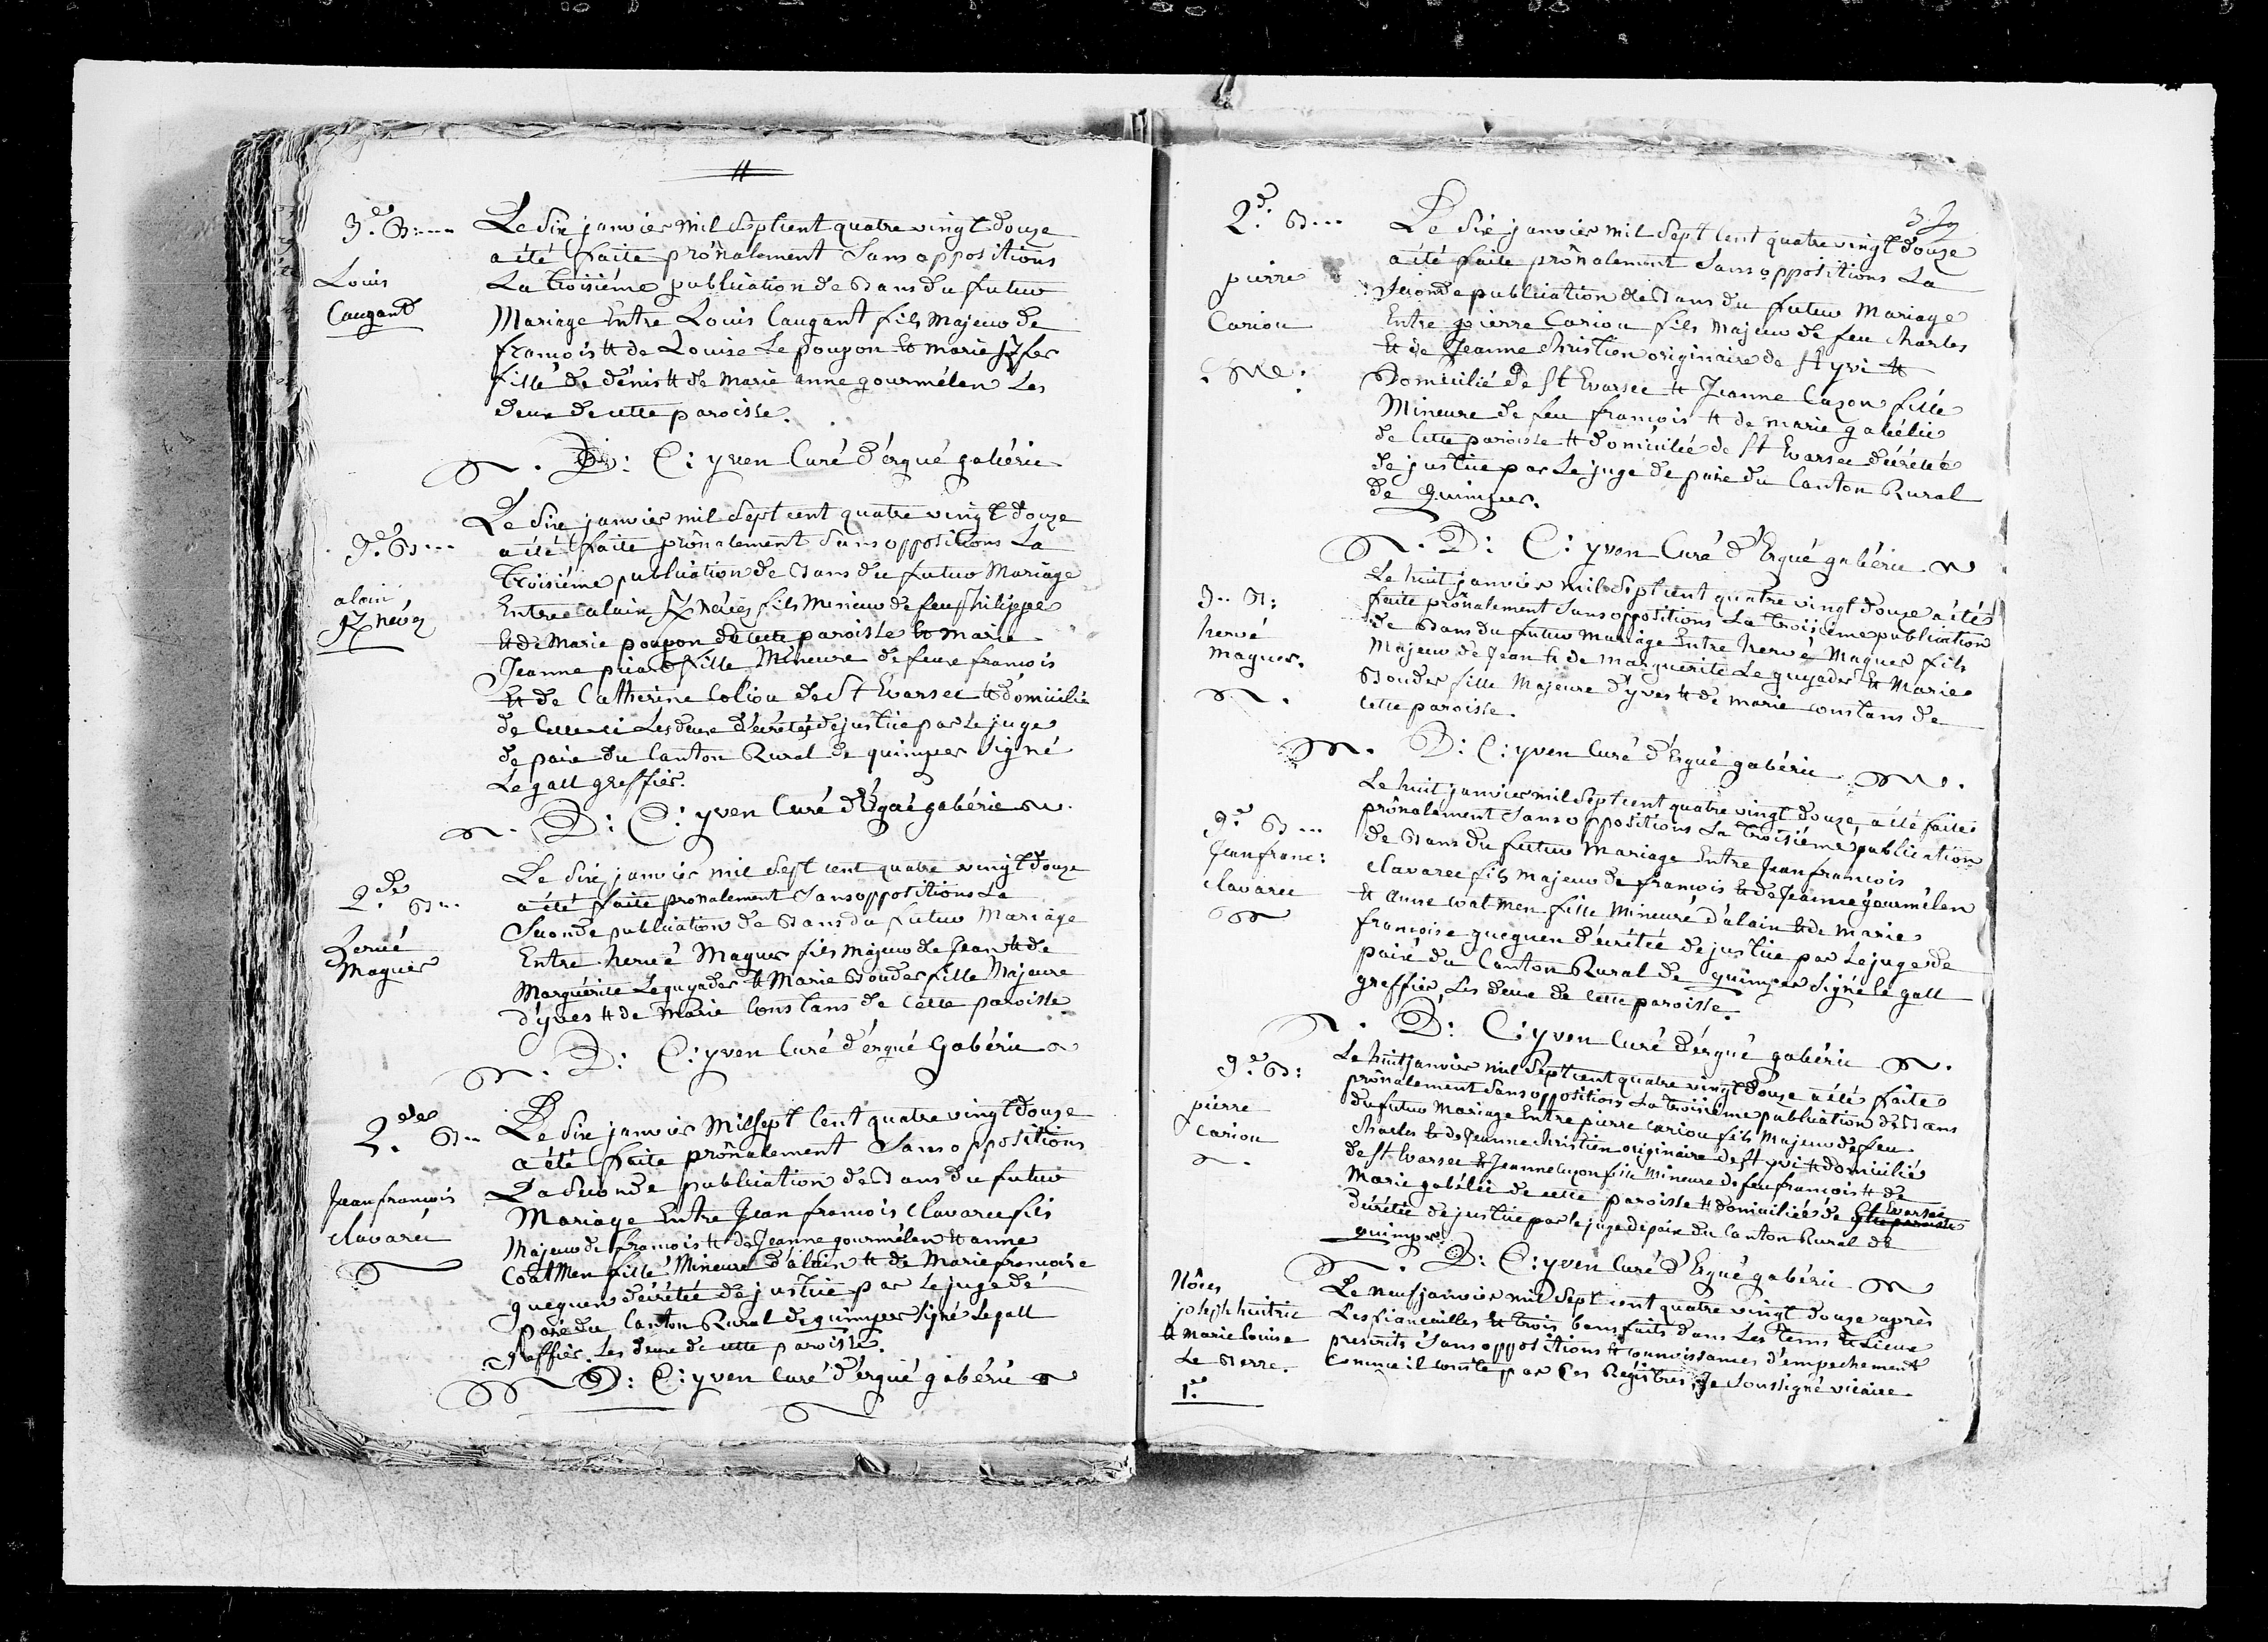 3.e B...
Louis
Caugant
Le Six janvier mil Sept cent quatre vingt douze
a été faite prônalement Sans oppositions
La troisiéme publication de Bans du futur
Mariage Entre Louis Caugant fils Majeur de
françois et de Louise Le poupon et marie
fille de dénis et de Marie anne gourmélen Les
deux de cette paroisse.
D: C: yven Curé d'érgué gabéric
3.e B...
alain
Kz névez
Le Six janvier mil Sept cent quatre vingt douze
a été faite prônalement Sans oppositions La
troisiéme publication de Bans du futur Mariage
Entre alain Kz névez fils Mineur de feu Philippe
et de Marie poupon de cette paroisse et marie
Jeanne priard fille Mineure de feux françois
et de Catherine Coliou de St Evarzec et domicilié
de Celle ci Les deux décrétés de justice par Le juge
de paix du Canton Rural de quimper Signé
Le gall greffier.
D: C: yven Curé d'Ergué gabéric
2.de B...
hervé
Maguer
Le Six janvier mil Sept cent quatre vingt douze
a été faite pronalement Sans oppositions La
Seconde publication de Bans du futur Mariage
Entre hervé Maguer fils Majeur de Jean et de
Marguérite Le guyader et Marie Bouder fille Majeure
d'yves et de Marie Constans de Cette paroisse.
D: C: yven Curé d'érgué Gabéric
2.de B..
Jean françois
clavarec
Le Six janvier Mil Sept Cent quatre vingt douze
a été faite prônalement Sans oppositions
La Seconde publication de Bans du futur
Mariage Entre Jean françois clavarec fils
Majeur de françois et de Jeanne gourmélen et anne
Coatmen fille Mineure d'alain et de Marie françoise
gueguen décrétée de justice par Le juge de
paix du Canton Rural de quimper Signé Le gall
greffier. Les deux de cette paroisse.
D: C: yven Curé d'érgué gabéric
2.d B...
pierre
Cariou
Le Six janvier mil Sept Cent quatre vingt douze
a été faite prônalement Sans oppositions La
Seconde publication de Bans du futur Mariage
Entre pierre Cariou fils Majeur de feu charles
et de Jeanne christien originaire de St yvi et
Domicilié de St Evarzec et Jeanne Cuzon fille
Mineure de feu françois et de marie gabélic
de Cette paroisse et domiciliée de St Evarzec décrétée
de justice par Le juge de paix du Canton Rural
de quimper.
D: C: yven Curé d'Ergué gabéric
3.. B:
hervé
maguer.
Le huit janvier mil Sept cent quatre vingt douze a été
faite prônalement Sans oppositions La troisieme publication
de Bans du futur Mariage Entre hervé Maguer fils
Majeur de Jean et de marguerite Le guyader et Marie
Bouder fille Majeure d'yves et de Marie constans de
cette paroisse.
D: C: yven Curé d'Ergué gabéric
3.e B...
Jean franc:
clavarec
Le huit janvier mil Sept cent quatre vingt douze, a été faite
prônalement Sans oppositions La troisiéme publication
de Bans du futur Mariage Entre Jean francois
clavarec fils Majeur de françois et de Jeanne gourmélen
et Anne coatmen fille Mineure d'alain et de Marie
françoise gueguen décrétée de justice par Le juge de
paix du Canton Rural de quimper Signé le gall
greffier, Les deux de cette paroisse.
D: C: yven Curé d'érgué gabéric
3.e B:
pierre
cariou
Le huit janvier mil Sept cent quatre vingt douze a été faite
prônalement Sans oppositions La troisiéme publication de Bans
du futur Mariage Entre pierre cariou fils Majeur de feu
charles et de Jeanne christien originaire de St yvi et domicilié
de St Evarzec et Jeanne cuzon fille Mineure de feu francois et de
Marie gabélic de cette paroisse et domiciliée de cette paroisse St Evarzec
décrétée de justice par le juge de paix du Canton Rural de
quimper.
D: C: yven Curé d'Ergué gabéric
Nôces
joseph huitric
et Marie Louise
Le Berre.
1.e
Le neuf janvier mil Sept cent quatre vingt douze après
Les fiancailles et trois bans faits dans Les tems et Lieux
prescrits Sans oppositions et connoissances d'empechement
comme il conste par Ces Régistres, Je Soussigné vicaire